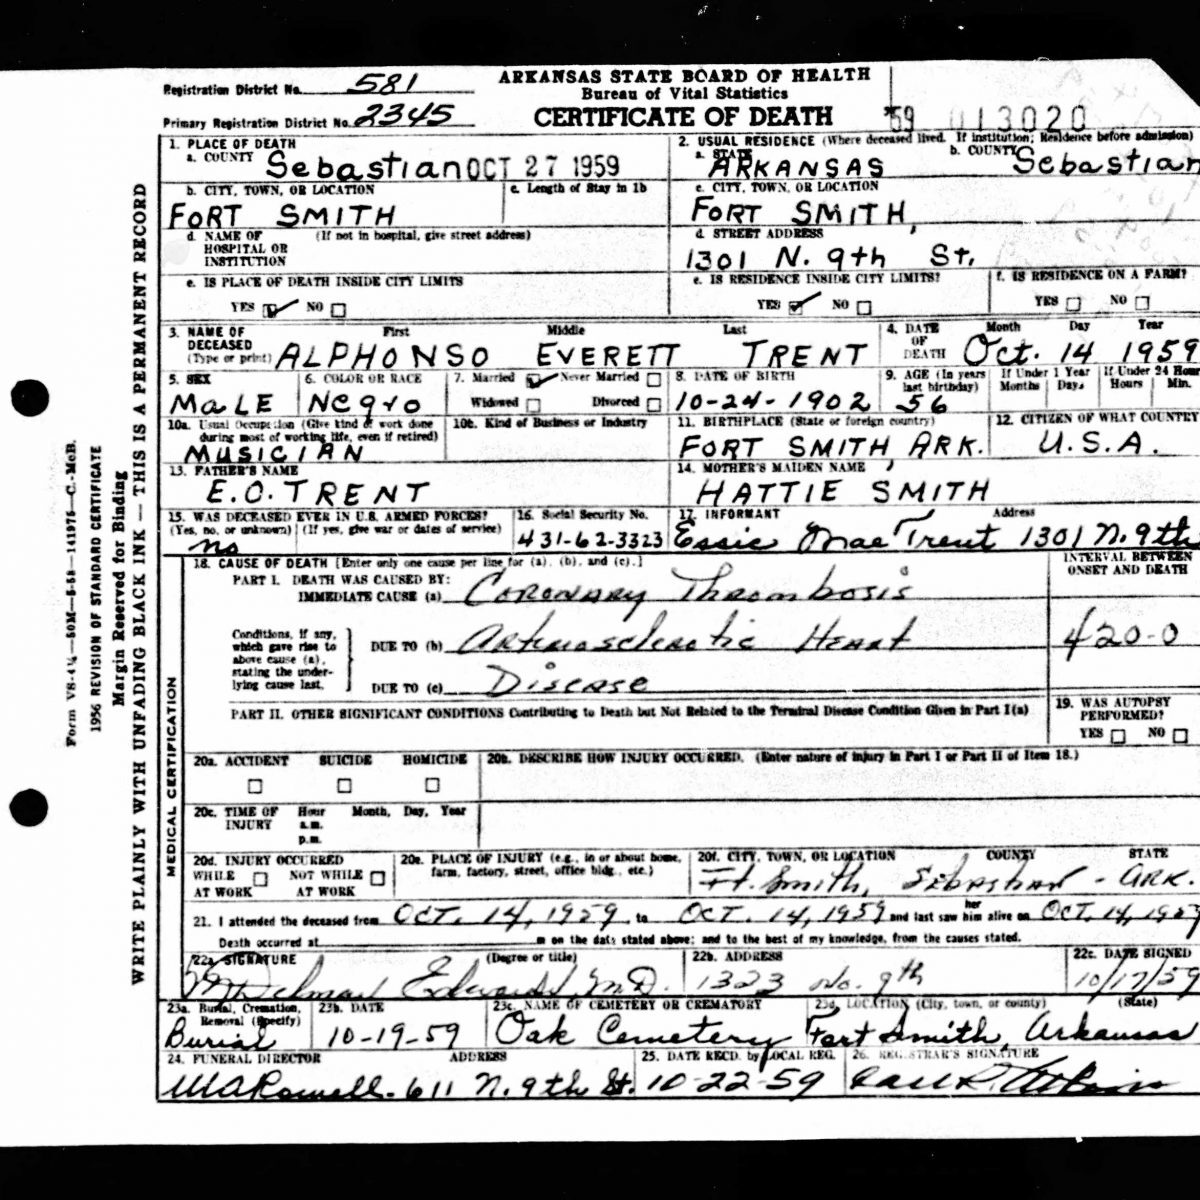 Registration District No. 581
ARKANSAS STATE BOARD OF HEALTH
Bureau of Vital Statistics
Primary Registration District No. 2345
CERTIFICATE OF DEATH
'59 013020
1. PLACE OF DEATH
a. COUNTY Sebastian OCT 27 1959
2. USUAL RESIDENCE (Where deceased lived. If institution; Residence before admission)
a. STATE ARKANSAS b. COUNTY Sebastian
b. CITY, TOWN, OR LOCATION
FORT SMITH
c. Length of Stay in 1b
c. CITY, TOWN, OR LOCATION
FORT SMITH,
d. NAME OF HOSPITAL OR INSTITUTION (If not in hospital, give street address)
d. STREET ADDRESS
1301 N. 9th St.
e. IS PLACE OF DEATH INSIDE CITY LIMITS
YES NO
e. IS RESIDENCE INSIDE CITY LIMITS?
YES NO
f. IS RESIDENCE ON A FARM?
YES NO
3. NAME OF DECEASED (Type or print)
First Middle Last
ALPHONSO EVERETT TRENT
4. DATE OF DEATH Month Day Year
Oct. 14 1959
5. SEX
MaLE
6. COLOR OR RACE
Negro
7. Married Never Married
Widowed Divorced
8. DATE OF BIRTH
10-24-1902
9. AGE (In years last birthday)
56
If Under 1 Year
Months Days
If Under 24 Hour
Hours Min.
10a. Usual Occupation (Give kind of work done during most of working life, even if retired)
MUSICIAN
10b. Kind of Business or Industry
11. BIRTHPLACE (State or foreign country)
FORT SMITH, ARK.
12. CITIZEN OF WHAT COUNTRY
U.S.A.
13. FATHER'S NAME
E.O. TRENT
14. MOTHER'S MAIDEN NAME
HATTIE SMITH
15. WAS DECEASED EVER IN U.S. ARMED FORCES?
(Yes, no, or unknown) (If yes, give war or dates of service)
no
16. Social Security No.
431-62-3323
17. INFORMANT Address
Essie Mae Trent 1301 N. 9th
18. CAUSE OF DEATH [Enter only one cause per line for (a), (b), and (c).]
INTERVAL BETWEEN ONSET AND DEATH
PART I. DEATH WAS CAUSED BY:
IMMEDIATE CAUSE (a) Coronary Thrombosis
Conditions, if any, which gave rise to above cause (a), stating the underlying cause last.
DUE TO (b) Arteriosclerotic Heart
420-0
DUE TO (c) Disease
PART II. OTHER SIGNIFICANT CONDITIONS Contributing to Death but Not Related to the Terminal Disease Condition Given in Part I(a)
19. WAS AUTOPSY PERFORMED?
YES NO
20a. ACCIDENT SUICIDE HOMICIDE
20b. DESCRIBE HOW INJURY OCCURRED. (Enter nature of injury in Part I or Part II of Item 18.)
20c. TIME OF INJURY Hour a.m. p.m. Month, Day, Year
20d. INJURY OCCURRED
WHILE AT WORK NOT WHILE AT WORK
20e. PLACE OF INJURY (e.g., in or about home, farm, factory, street, office bldg., etc.)
20f. CITY, TOWN, OR LOCATION COUNTY STATE
Ft. Smith, Sebastian - ARK.
21. I attended the deceased from OCT. 14, 1959 to OCT. 14, 1959 and last saw her him alive on OCT. 14, 1959
Death occurred at m on the date stated above; and to the best of my knowledge, from the causes stated.
22a. SIGNATURE (Degree or title)
Delmar Edwards M.D.
22b. ADDRESS
1323 No. 9th
22c. DATE SIGNED
10/17/59
23a. Burial, Cremation, Removal (Specify)
Burial
23b. DATE
10-19-59
23c. NAME OF CEMETERY OR CREMATORY
Oak Cemetery
23d. LOCATION (City, town, or county) (State)
Fort Smith, Arkansas
24. FUNERAL DIRECTOR ADDRESS
Rowell - 611 N. 9th St.
25. DATE RECD. by LOCAL REG.
10-22-59
26. REGISTRAR'S SIGNATURE
Form VS-4¼—50M—5-58—141975—C.-McB.
1956 REVISION OF STANDARD CERTIFICATE
Margin Reserved for Binding
WRITE PLAINLY WITH UNFADING BLACK INK — THIS IS A PERMANENT RECORD
MEDICAL CERTIFICATION